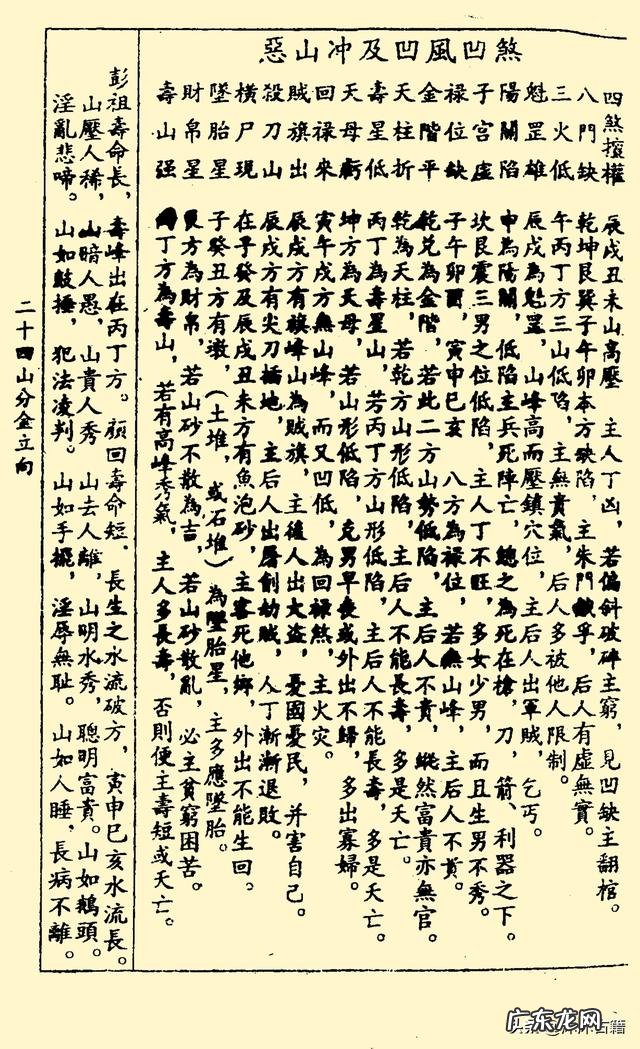 惡山冲及凹風凹煞
四煞擅權 辰戌丑未山高壓 主人丁凶,若偏斜破碎主窮,見凹缺主翻棺。
八門缺 乾坤艮巽子午卯本方缺陷,主朱門餓孚,后人有虛無實。
三火低 午丙丁方三山低陷,主無貴氣,后人多被他人限制。
魁罡雄 辰戌為魁罡,山峰高而壓鎮穴位,主后人出軍賊,乞丐。
陽關陷 申為陽關,低陷主兵死陣亡,總之為死在槍,刀,箭、利器之下。
子宮虛 坎艮震三男之位低陷,主人丁不旺,多女少男,而且生男不秀。
祿位缺 子午卯酉,寅申巳亥 八方為祿位,若無山峰,主后人不貴。
金階平 乾兌為金階,若此二方山勢低陷,主后人不貴,縱然富貴亦無官。
天柱折 乾為天柱,若乾方山形低陷,主后人不能長壽,多是夭亡。
壽星低 丙丁為壽星山,若丙丁方山形低陷,主后人不能長壽,多是夭亡。
天母虧 坤方為天母,若山形低陷,克男早喪或外出不歸,多出寡婦。
回祿來 寅午戌方無山峰,而又凹低,為回祿煞,主火灾。
賊旗出 辰戌方有旗峰山為賊旗,主後人出大盗,憂國憂民,并害自己。
殺刀山 辰戌方有尖刀插地,主后人出屠創劫賊,人丁漸漸退敗。
橫尸現 在子癸及辰戌丑未方有魚泡砂,主客死他鄉,外出不能生回。
墜胎星 子癸丑方有墩,(土堆,或石堆)為墜胎星,主多應墜胎。
財帛星 艮方為財帛,若山砂不散為吉,若山砂散亂,必主貧窮困苦。
壽山强 丙丁方為壽山,若有高峰秀氣,主人多長壽,否則便主壽短或夭亡。
彭祖壽命長,壽峰出在丙丁方。顏回壽命短。長生之水流破方,寅申巳亥水流長。
山壓人稀,山暗人愚 山貴人秀 山去人離,山明水秀,聰明富貴。山如鵝頭。
淫亂悲啼。山如鼓捶,犯法凌判。山如手擺,淫辱無耻。山如人睡,長病不離。
二十四山分金立向
广东龙网